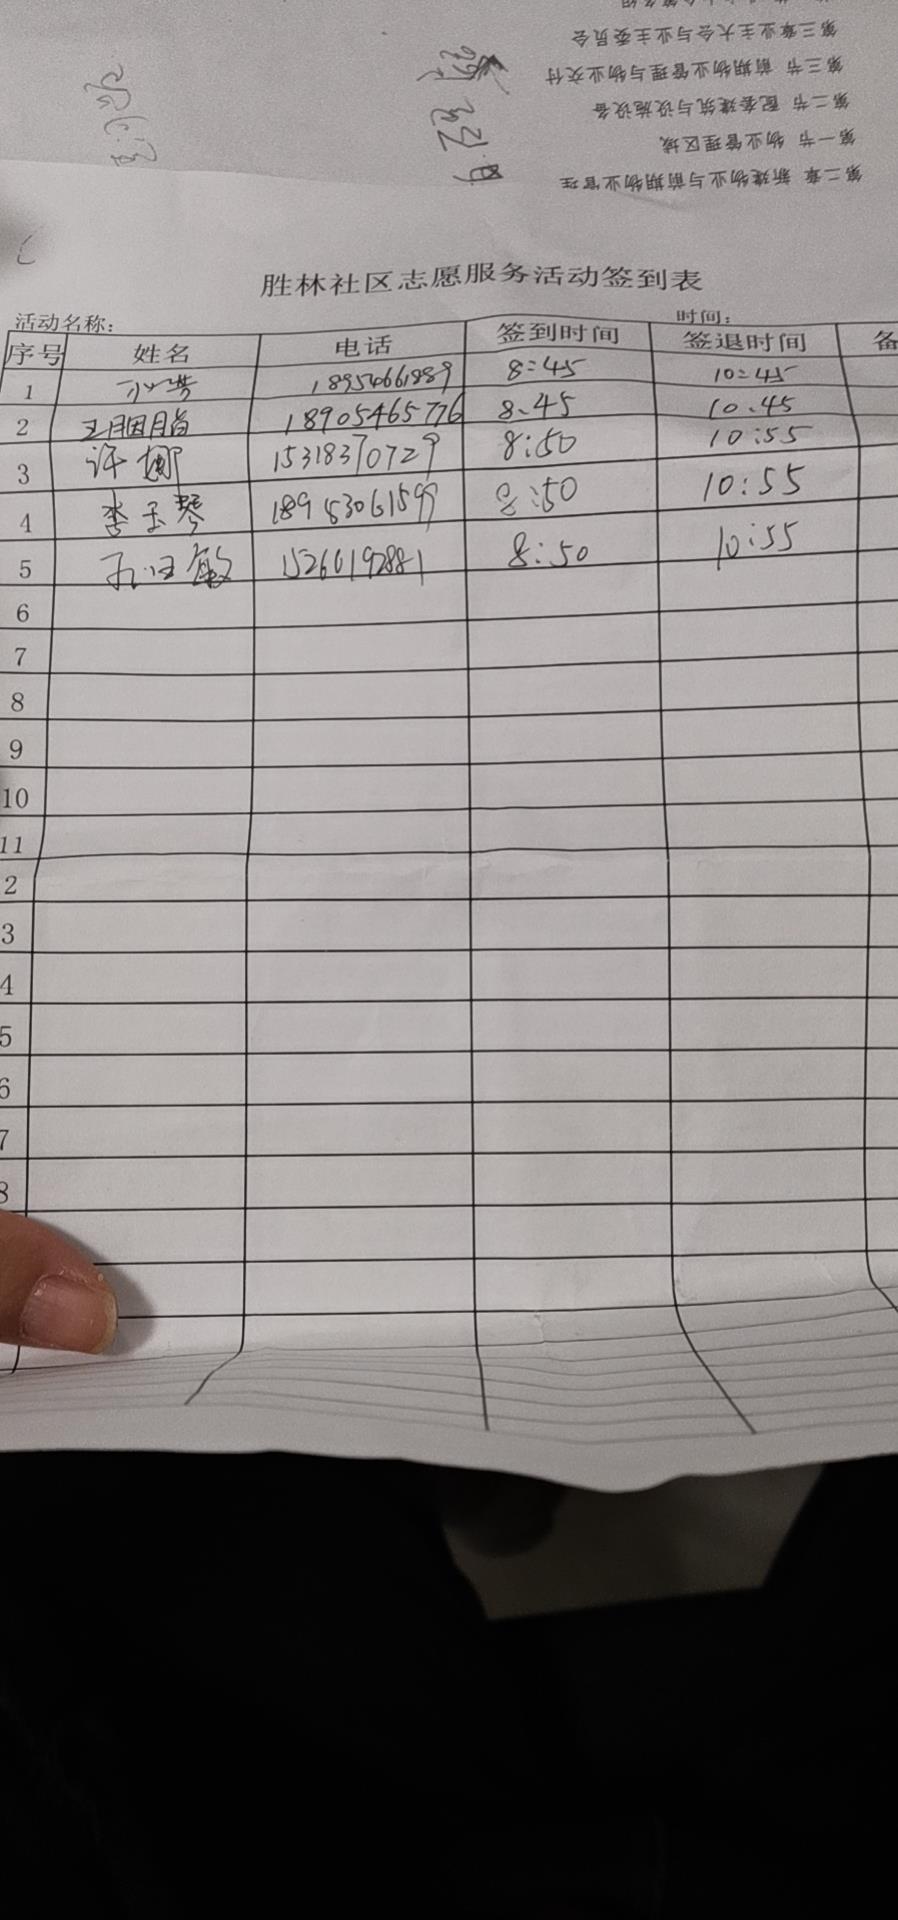 第三章 业主大会与业主委员会
第三节 前期物业管理与物业交付
第二节 配套建筑与设施设备
第一节 物业管理区域
第二章 新建物业与前期物业管理
胜林社区志愿服务活动签到表
活动名称: 时间:
序号 姓名 电话 签到时间 签退时间 备
1 18954661889 8:45 10:45
2 王胭脂 18905465776 8.45 10.45
3 许娜 15318370729 8:50 10:55
4 李玉琴 18953061599 8:50 10:55
5 15266192881 8:50 10:55
6
7
8
9
10
11
2
3
4
5
6
7
8